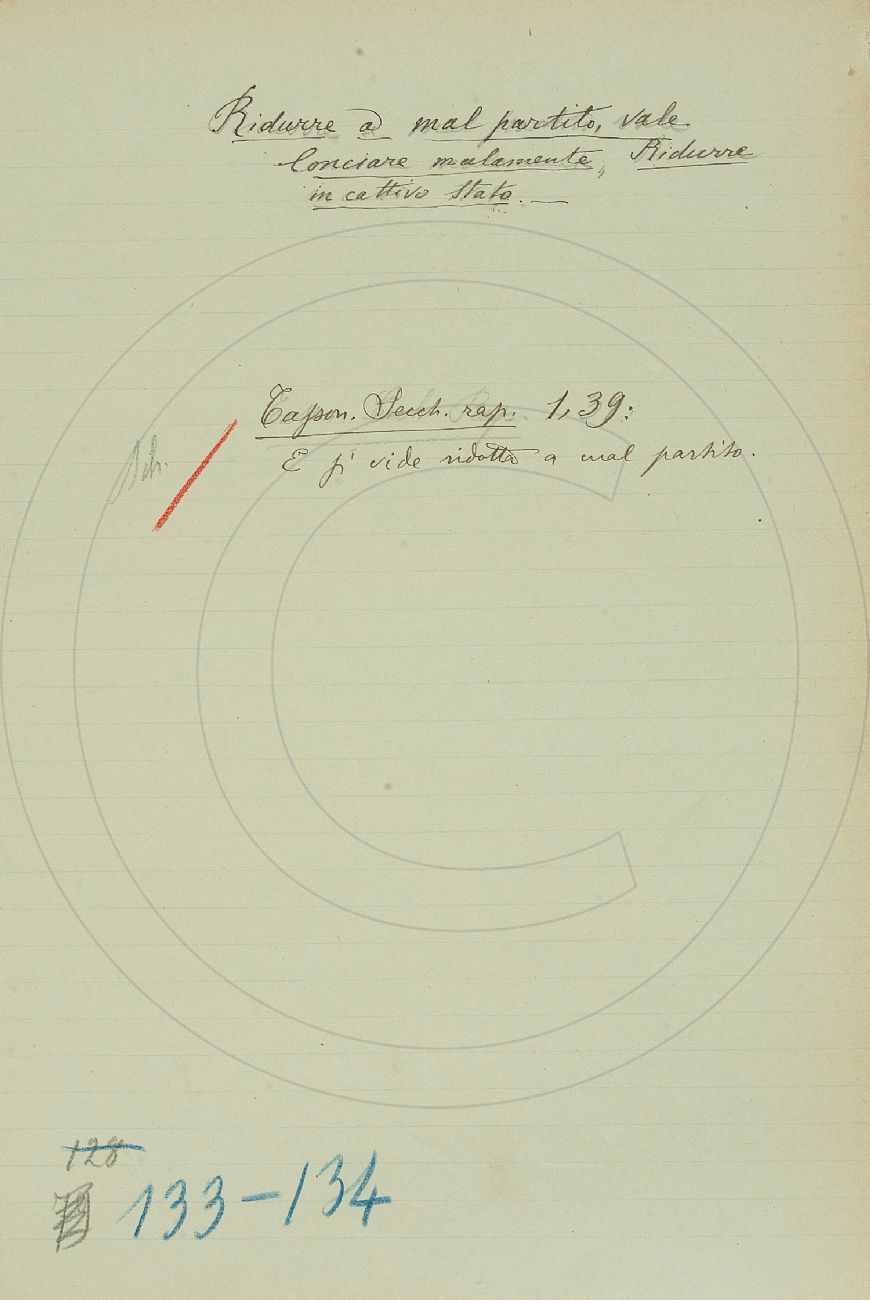 Ridurre a mal partito, vale
Conciare malamente, Ridurre
in cattivo stato. —
Tasson. Secch. rap. 1, 39:
E si vide ridotto a mal partito.
Sch.
128
133-134